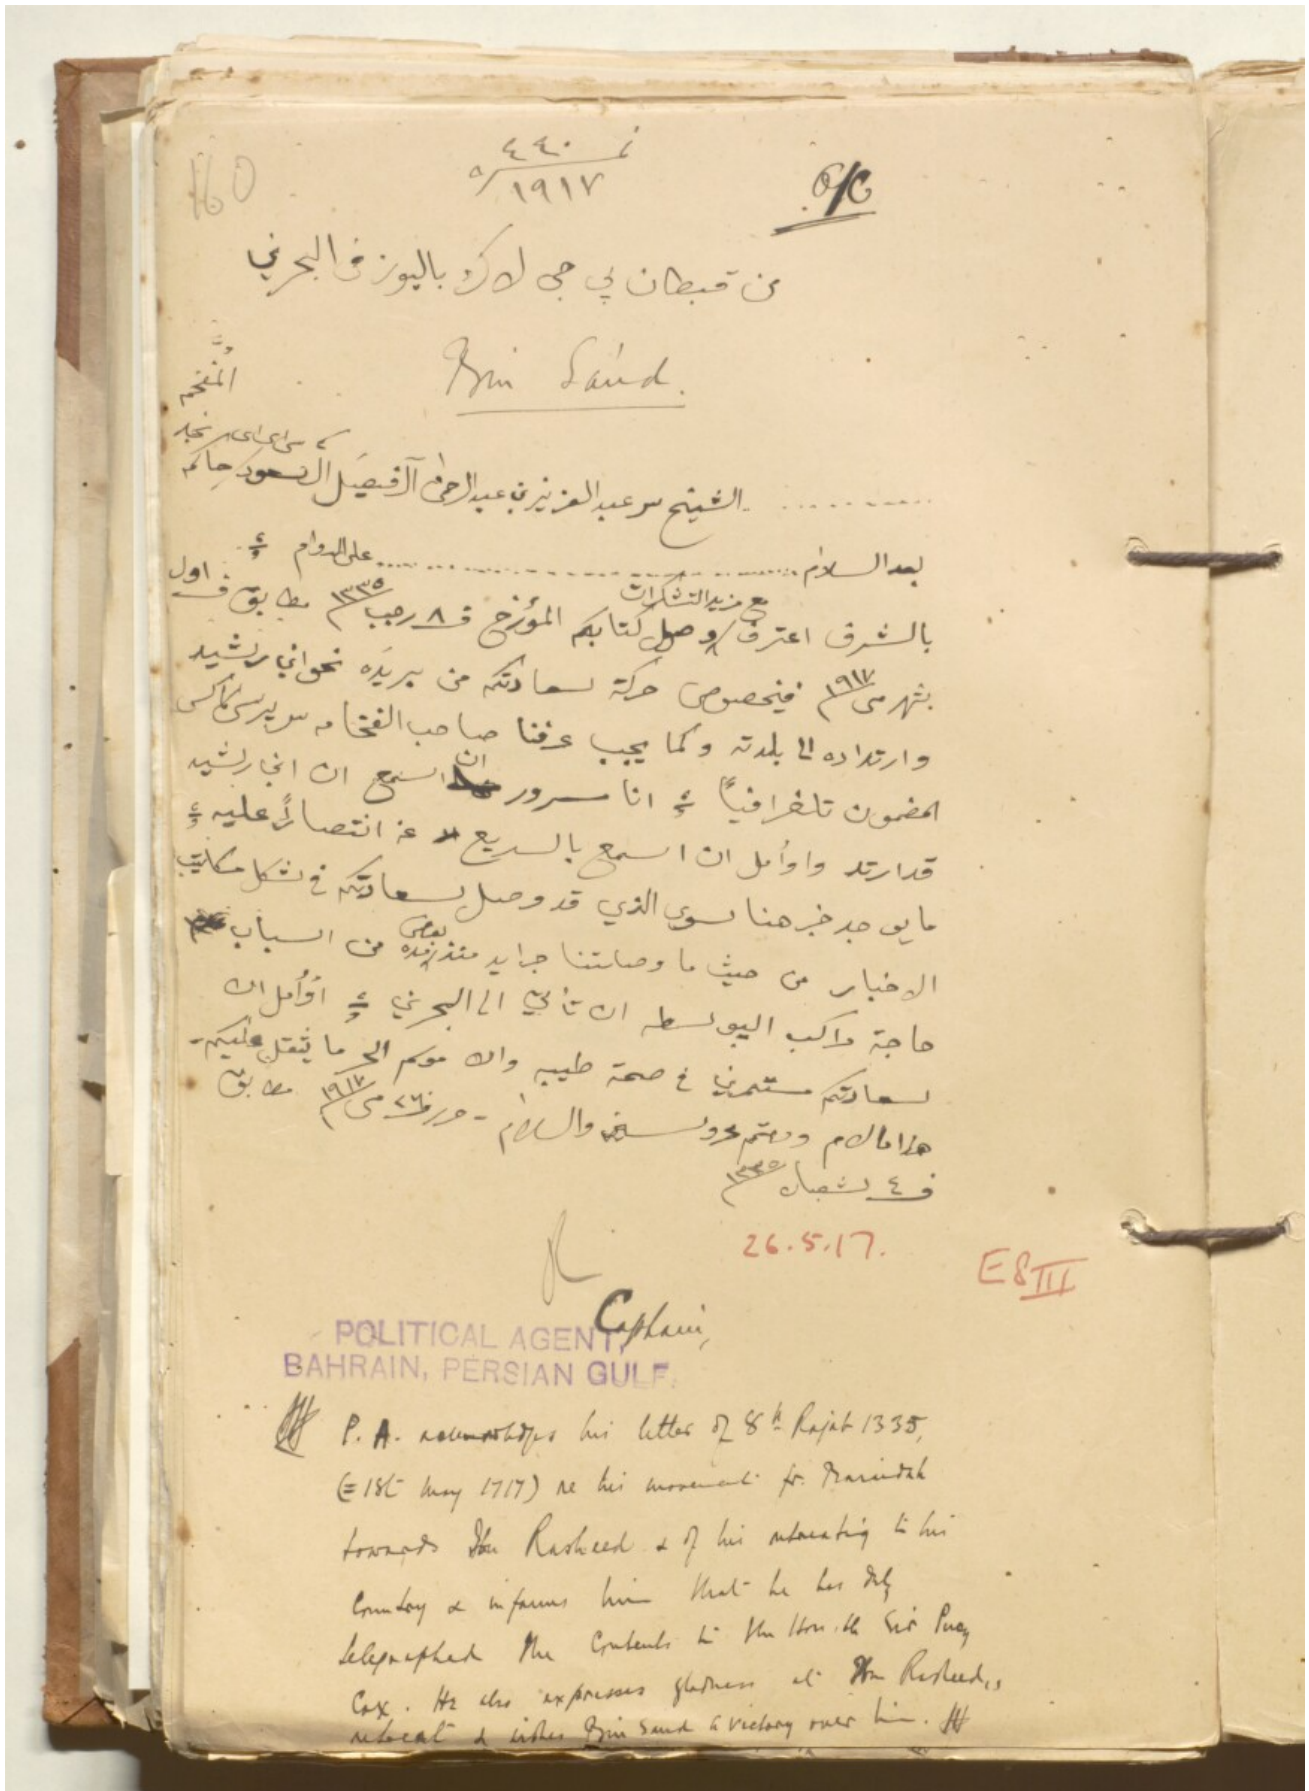 160
نمرة ٤٤٠
سنة ١٩١٧
O/C
من قبطان پي جي لاك باليوز في البحرين
Bin Saud.
المفخم
الشيخ سر عبدالعزيز بن عبدالرحمن آل فيصل آل سعود كي سي اي اي حاكم نجد
بعد السلام على الدوام
مع مزيد التشكرات
بالشرف اعترف وصول كتابكم المؤرخ في ٨ رجب ١٣٣٥ مطابق في اول
شهر مي ١٩١٧ فيخصوص حركة سعادتكم من بريده نحو ابن رشيد
وارتداده الى بلدته وكما يجب عرفنا صاحب الفخامه سر پرسي كاكس
المضمون تلغرافياً انا مسرور ان اسمع ان ابن رشيد
قد ارتد واوأمل ان اسمع بالسريع عن انتصاراً عليه
ما يوجد خبر هنا سوى الذي قد وصل سعادتكم في شكل مكاتيب
الاخبار من حيث ما وصلتنا جرايد منذ بعض مده من اسباب
حاجة مراكب البوسطه ان تأتي الى البحرين اؤأمل ان
سعادتكم مستمرين في صحة طيبه وان موسم الحر ما يثقل عليكم -
هذا ما لزم ودمتم محروسين والسلام - حرر في ٢٦ مي ١٩١٧ مطابق
في ٤ شعبان ١٣٣٥
26.5.17.
E 8 III
Captain,
POLITICAL AGENT,
BAHRAIN, PERSIAN GULF.
P. A. acknowledges his letter of 8th Rajab 1335,
(= 1st May 1917) re his movement fr. Baridah
towards Ibn Rasheed & of his retreating to his
Country & informs him that he has duly
telegraphed the Contents to the Hon. ble Sir Percy
Cox. He also expresses gladness at Ibn Rasheed's
retreat & wishes Bin Saud a victory over him.